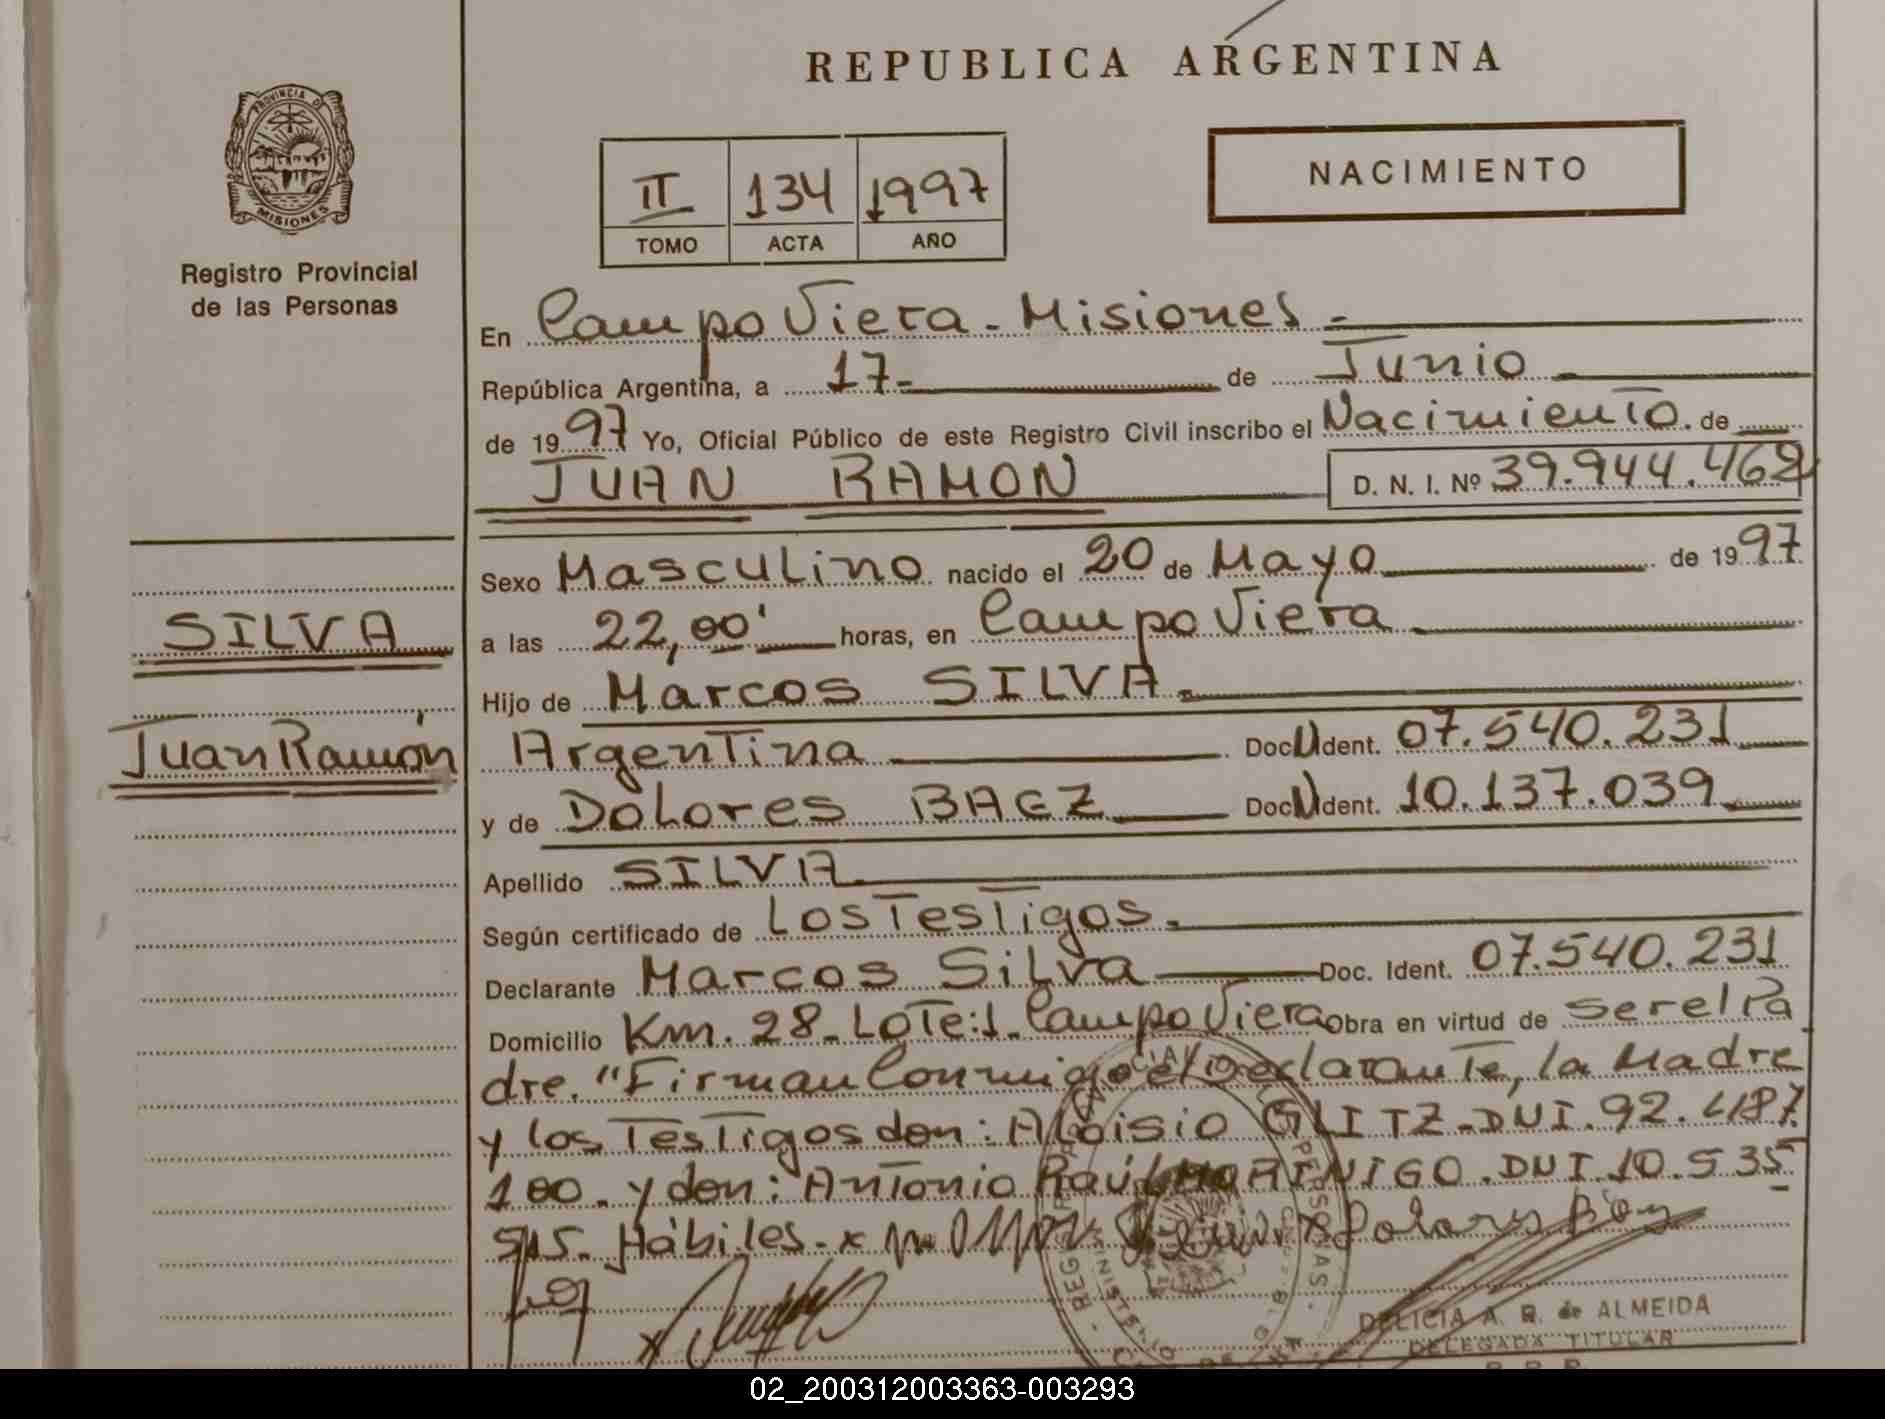 REPUBLICA ARGENTINA
PROVINCIA DE
MISIONES
Registro Provincial
de las Personas
II 134 1997
TOMO ACTA AÑO
NACIMIENTO
En Campo Viera - Misiones -
República Argentina, a 17- de Junio
de 1997 Yo, Oficial Público de este Registro Civil inscribo el Nacimiento de
JUAN RAMON D. N. I. Nº 39.944.462
Sexo Masculino nacido el 20 de Mayo de 1997
SILVA
a las 22,00' horas, en Campo Viera
Hijo de Marcos SILVA.
Juan Ramón
Argentina Doc U Ident. 07.540.231
y de Dolores BAEZ Doc U Ident. 10.137.039
Apellido SILVA
Según certificado de Los Testigos.
Declarante Marcos Silva Doc. Ident. 07.540.231
Domicilio Km. 28 - Lote: 1 - Campo Viera Obra en virtud de ser el Pa
dre. "Firman Conmigo el Declarante, la Madre
y los Testigos don: Aloisio GLITZ - DNI. 92.487.
100. y don: Antonio Raúl MARINIGO. DNI. 10.535
515. Hábiles. x
DELICIA A. R. de ALMEIDA
DELEGADA TITULAR
02_200312003363-003293